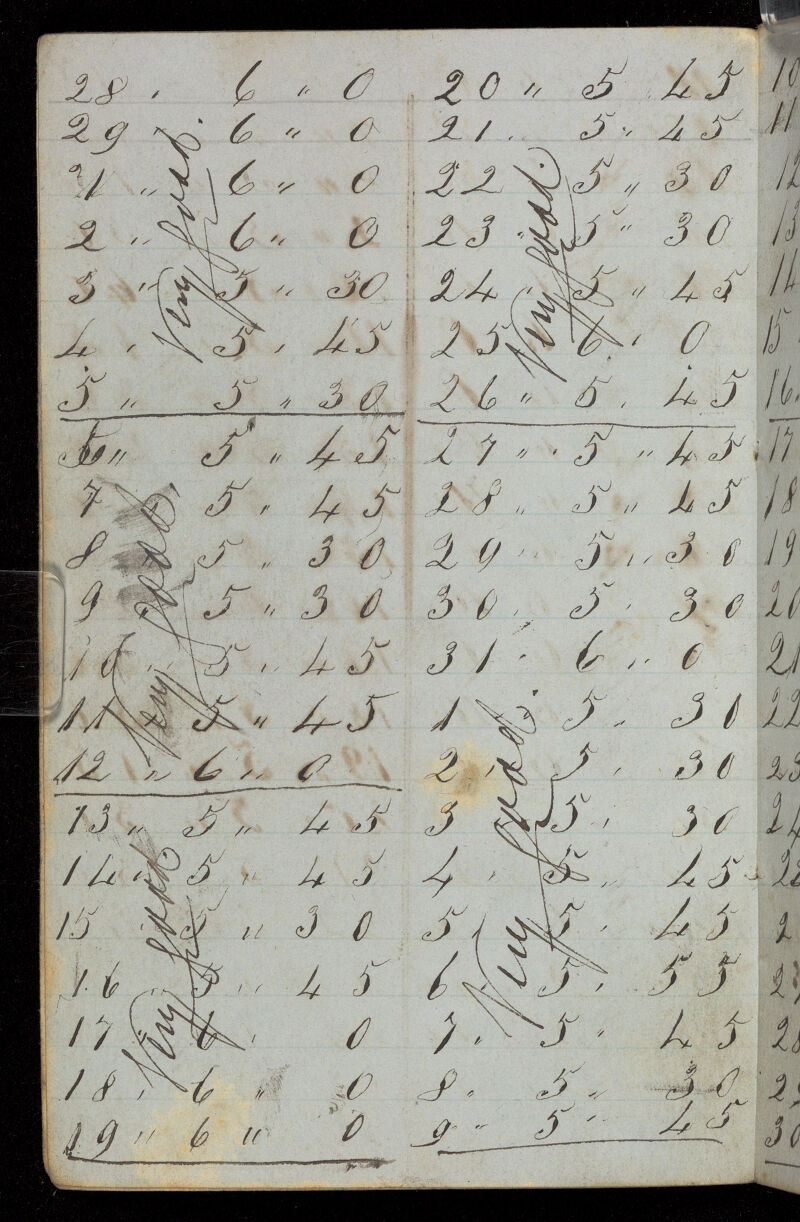 28 " 6 " 0
29 6 " 0
21 " 6 " 0
2 " 6 " 0
3 " 5 " 30
4 " 5 " 45
5 " 5 " 30
Very good.
6 " 5 " 45
7 5 " 45
8 5 " 30
9 5 " 30
10 " 5 " 45
11 5 " 45
12 " 6 " 0
Very good.
13 " 5 " 45
14 " 5 " 45
15 5 " 30
16 " 5 " 45
17 6 " 0
18 " 6 " 0
19 " 6 " 0
Very good
20 " 5 " 45
21 " 5 " 45
22 5 " 30
23 " 5 " 30
24 " 5 " 45
25 6 " 0
26 " 5 " 45
Very good.
27 " 5 " 45
28 " 5 " 45
29 " 5 " 30
30 " 5 " 30
31 " 6 " 0
1 5 " 30
2 " 5 " 30
3 5 " 30
4 " 5 " 45
5 " 5 " 45
6 " 5 " 55
7 " 5 " 45
8 " 5 " 30
9 " 5 " 45
Very good.
10
11
12
13
14
15
16
17
18
19
20
21
22
23
24
28
30